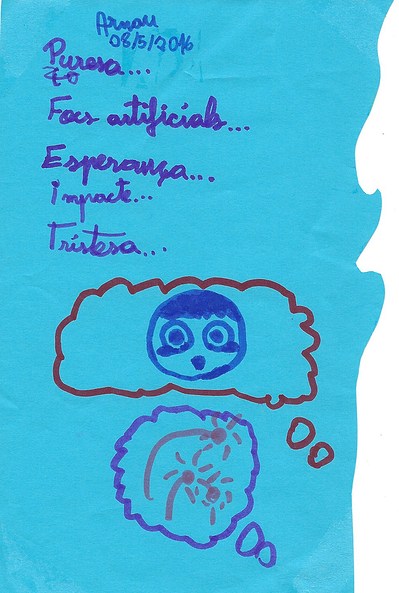 Arnau
08/5/2016
Puresa...
Focs artificials...
Esperança...
impacte...
Tristesa...